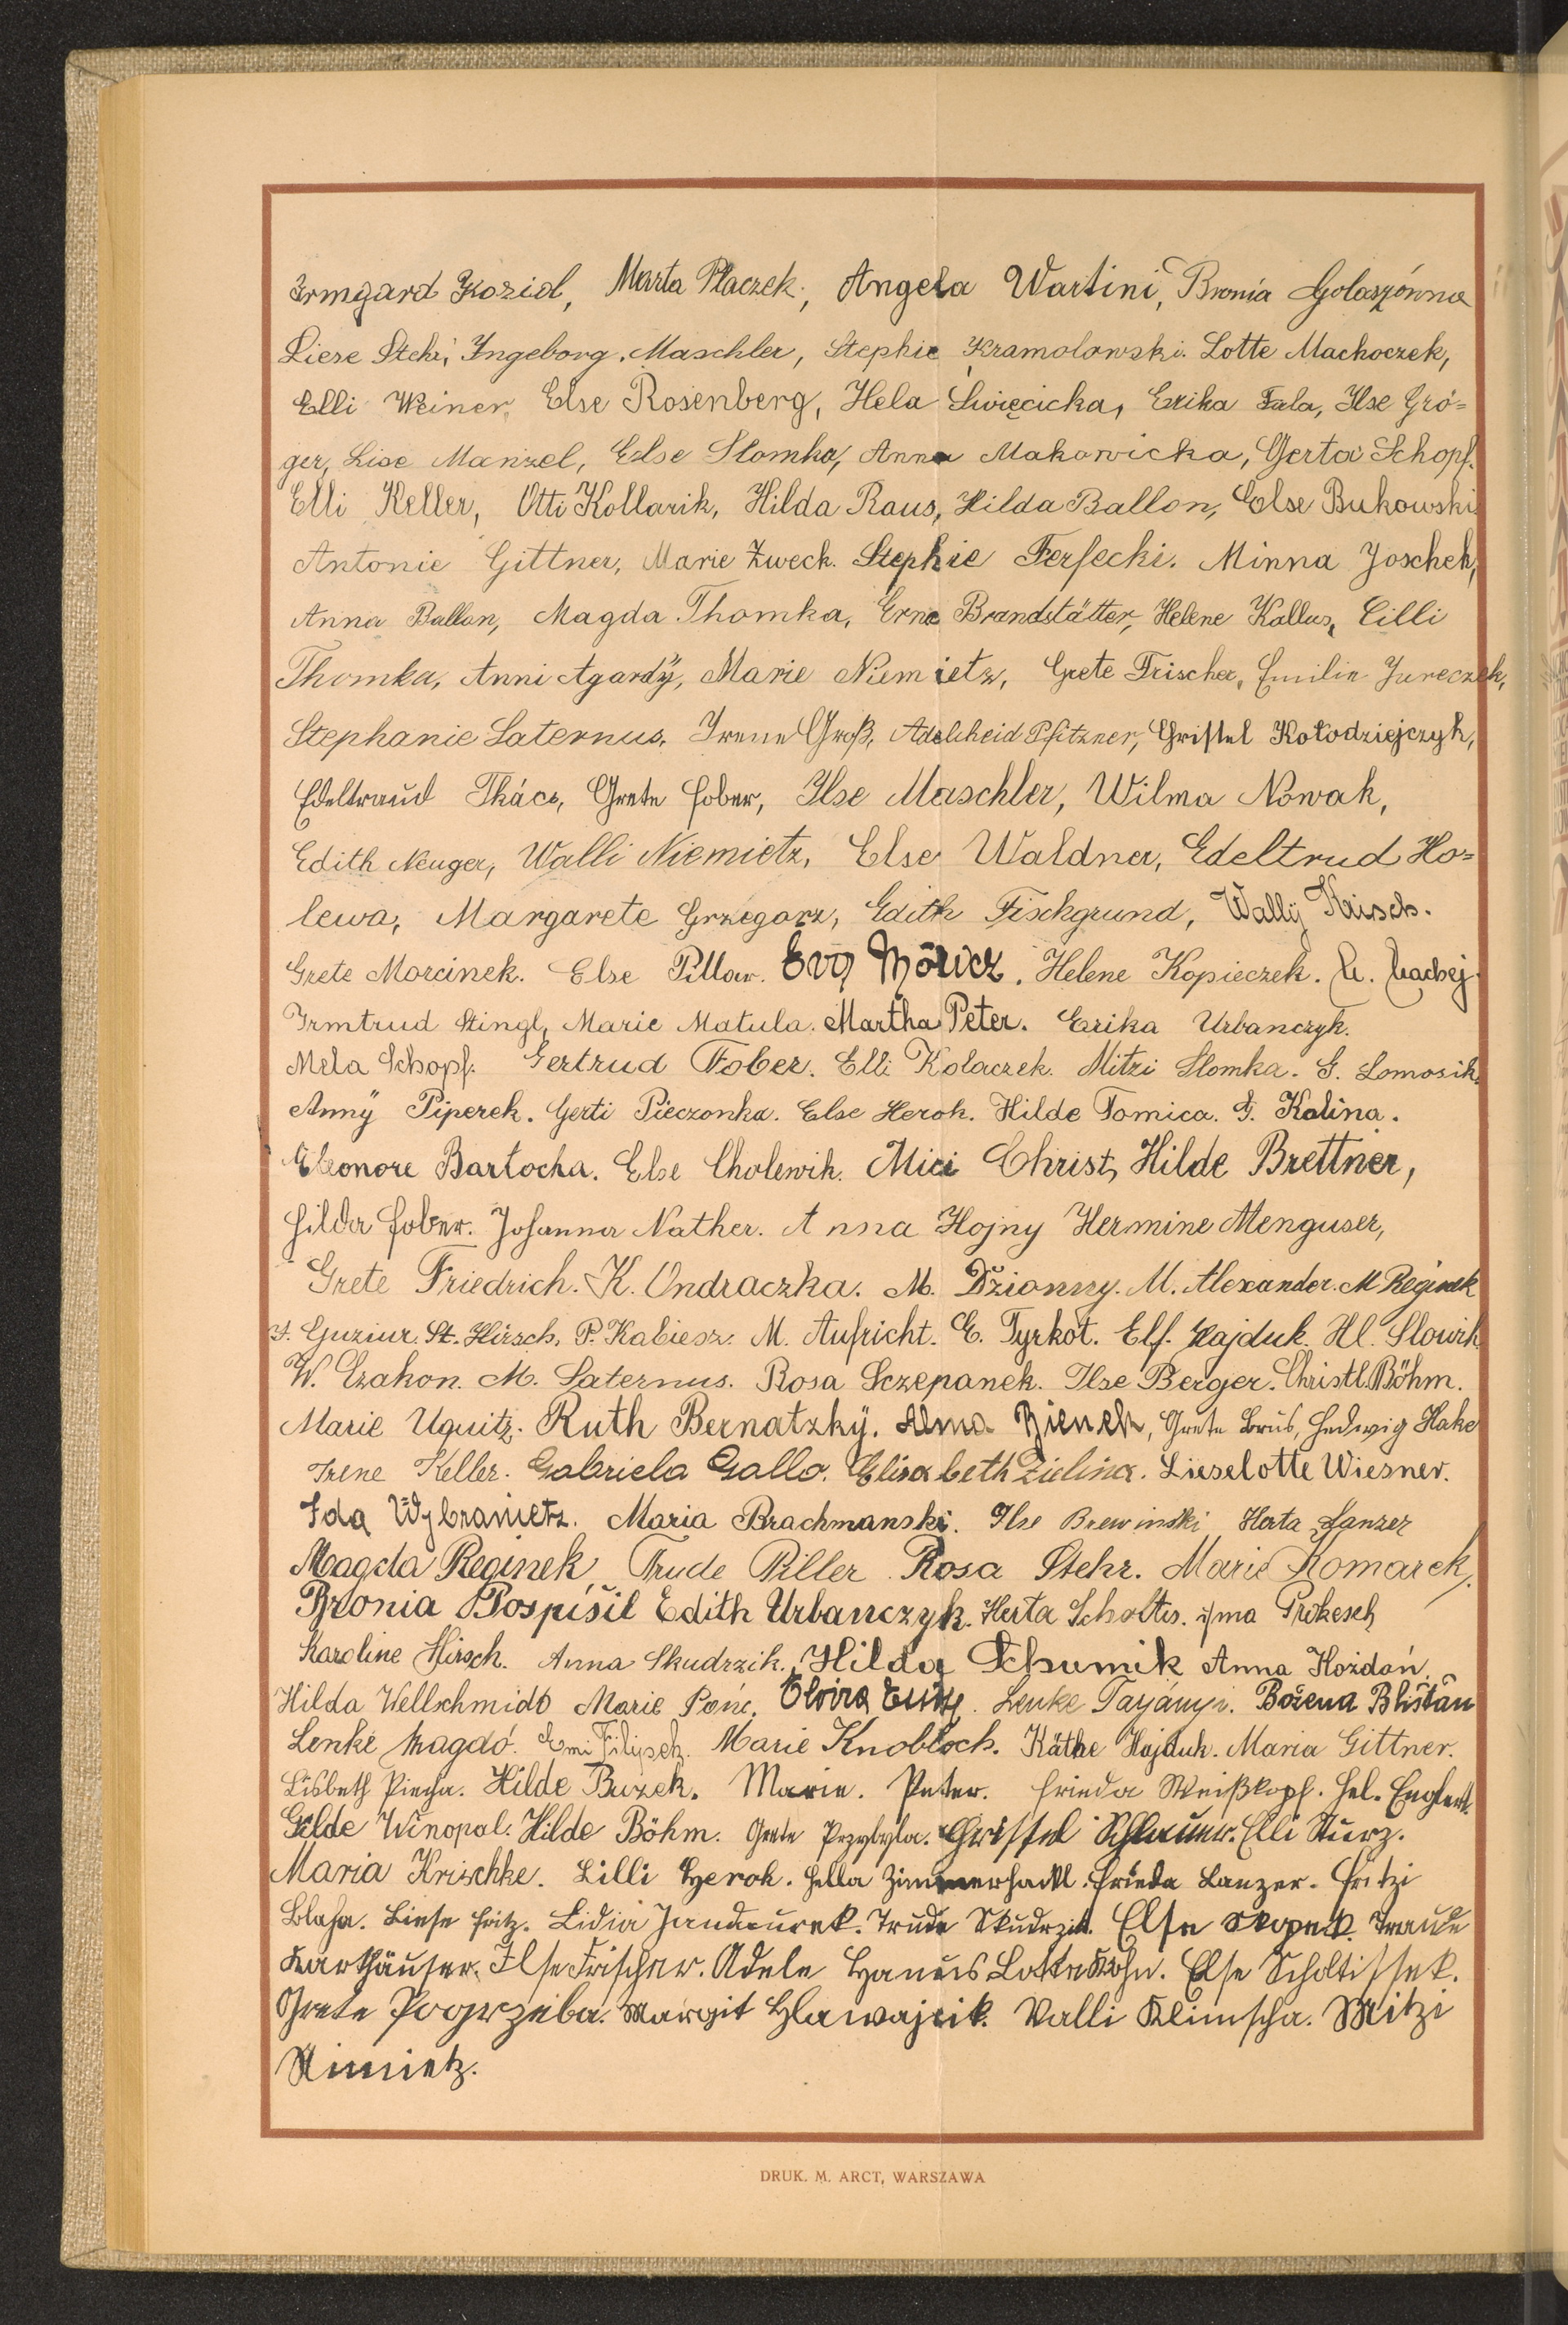 Irmgard Koziol, Marta Płaczek, Angela Wartini, Bronia Golaszówna
Liese Stehr, Ingeborg Maschler, Stephie Kramolowski. Lotte Machoczek,
Elli Weiner, Else Rosenberg, Hela Święcicka, Erika Fula, Ilse Grö=
ger, Lise Manzel, Else Slomka, Anna Makowicka, Gerta Schopf.
Elli Keller, Otti Kollarik, Hilda Raus, Hilda Ballon, Else Bukowski
Antonie Gittner, Marie Zweck. Stephie Ferfecki. Minna Joschek,
Anna Ballon, Magda Thomka, Erna Brandstätter, Helene Kallus, Cilli
Thomka, Anni Agardÿ, Marie Niemietz, Grete Frischer, Emilie Jureczek,
Stephanie Laternus, Irene Groß, Adelheid Pfitzner, Christel Kołodziejczyk,
Edeltraud Tkács, Grete Fober, Ilse Maschler, Wilma Nowak,
Edith Neuger, Walli Niemietz, Else Waldner, Edeltrud Ho=
lewa, Margarete Grzegorz, Edith Fischgrund, Wally Kirisch.
Grete Morcinek. Else Pillow. Eva Möricz. Helene Kopieczek. Machej
Irmtrud Stingl, Marie Matula. Martha Peter. Erika Urbanczyk.
Mela Schopf. Gertrud Fober. Elli Kolaczek. Mitzi Slomka. G. Lomosik.
Annÿ Piperek. Gerti Pieczonka. Else Herok. Hilde Tomica. F. Kalina.
Eleonore Bartocha. Else Cholewik. Mici Christ, Hilde Brettner,
Hilda Fober. Johanna Nather. Anna Hojny Hermine Menguser,
Grete Friedrich. K. Ondraczka. M. Džionny. M. Alexander. M Reginek
J. Guziur. St. Hirsch. P. Kabiesz. M. Aufricht. E. Tyrkot. Elf. Hajduk. Hl. Slowik
W. Czakon. M. Laternus. Rosa Sczepanek. Ilse Berger. Christl. Böhm.
Marie Uquitz. Ruth Bernatzkÿ. Alma Bienek, Grete Brus, Hedwig Hake
Irene Keller. Gabriela Gallo. Elisabeth Zielina. Lieselotte Wiesner.
Ida Wybranietz. Maria Brachmanski. Ilse Brewinski Herta Lanzer
Magda Reginek, Trude Piller. Rosa Stehr. Marie Komarek,
Bronia Pospíšil Edith Urbanczyk. Herta Scholtis. Irma Prokesch
Karoline Hirsch. Anna Skudrzik. Hilda Schumik Anna Kożdoń.
Hilda Wellschmidt Marie Ponc. Elvira Lenke Tarjányi. Božena Blištân
Lenke Magdó. Emi Filipek. Marie Knobloch. Käthe Hajduk. Maria Gittner.
Lisbeth Piecha. Hilde Buzek. Marie. Peter. Frieda Weißkopf. Hel. Englert.
Hilde Winopal. Hilde Böhm. Grete Przybyla. Christel Schlauer. Elli Sturz.
Maria Krischke. Lilli Herok. Hella Zimmerhackl. Frieda Lanzer. Fritzi
Blaha. Liese Fritz. Lidia Jandaurek. Trude Skudrzik. Else Skopek. Traude
Karthäuser. Ilse Frischer. Adele Hanus Lotte Kohn. Else Scholtissek.
Grete Pogrzeba. Margit Hlawajcik. Valli Klimscha. Mitzi
Nimietz.
DRUK. M. ARCT, WARSZAWA